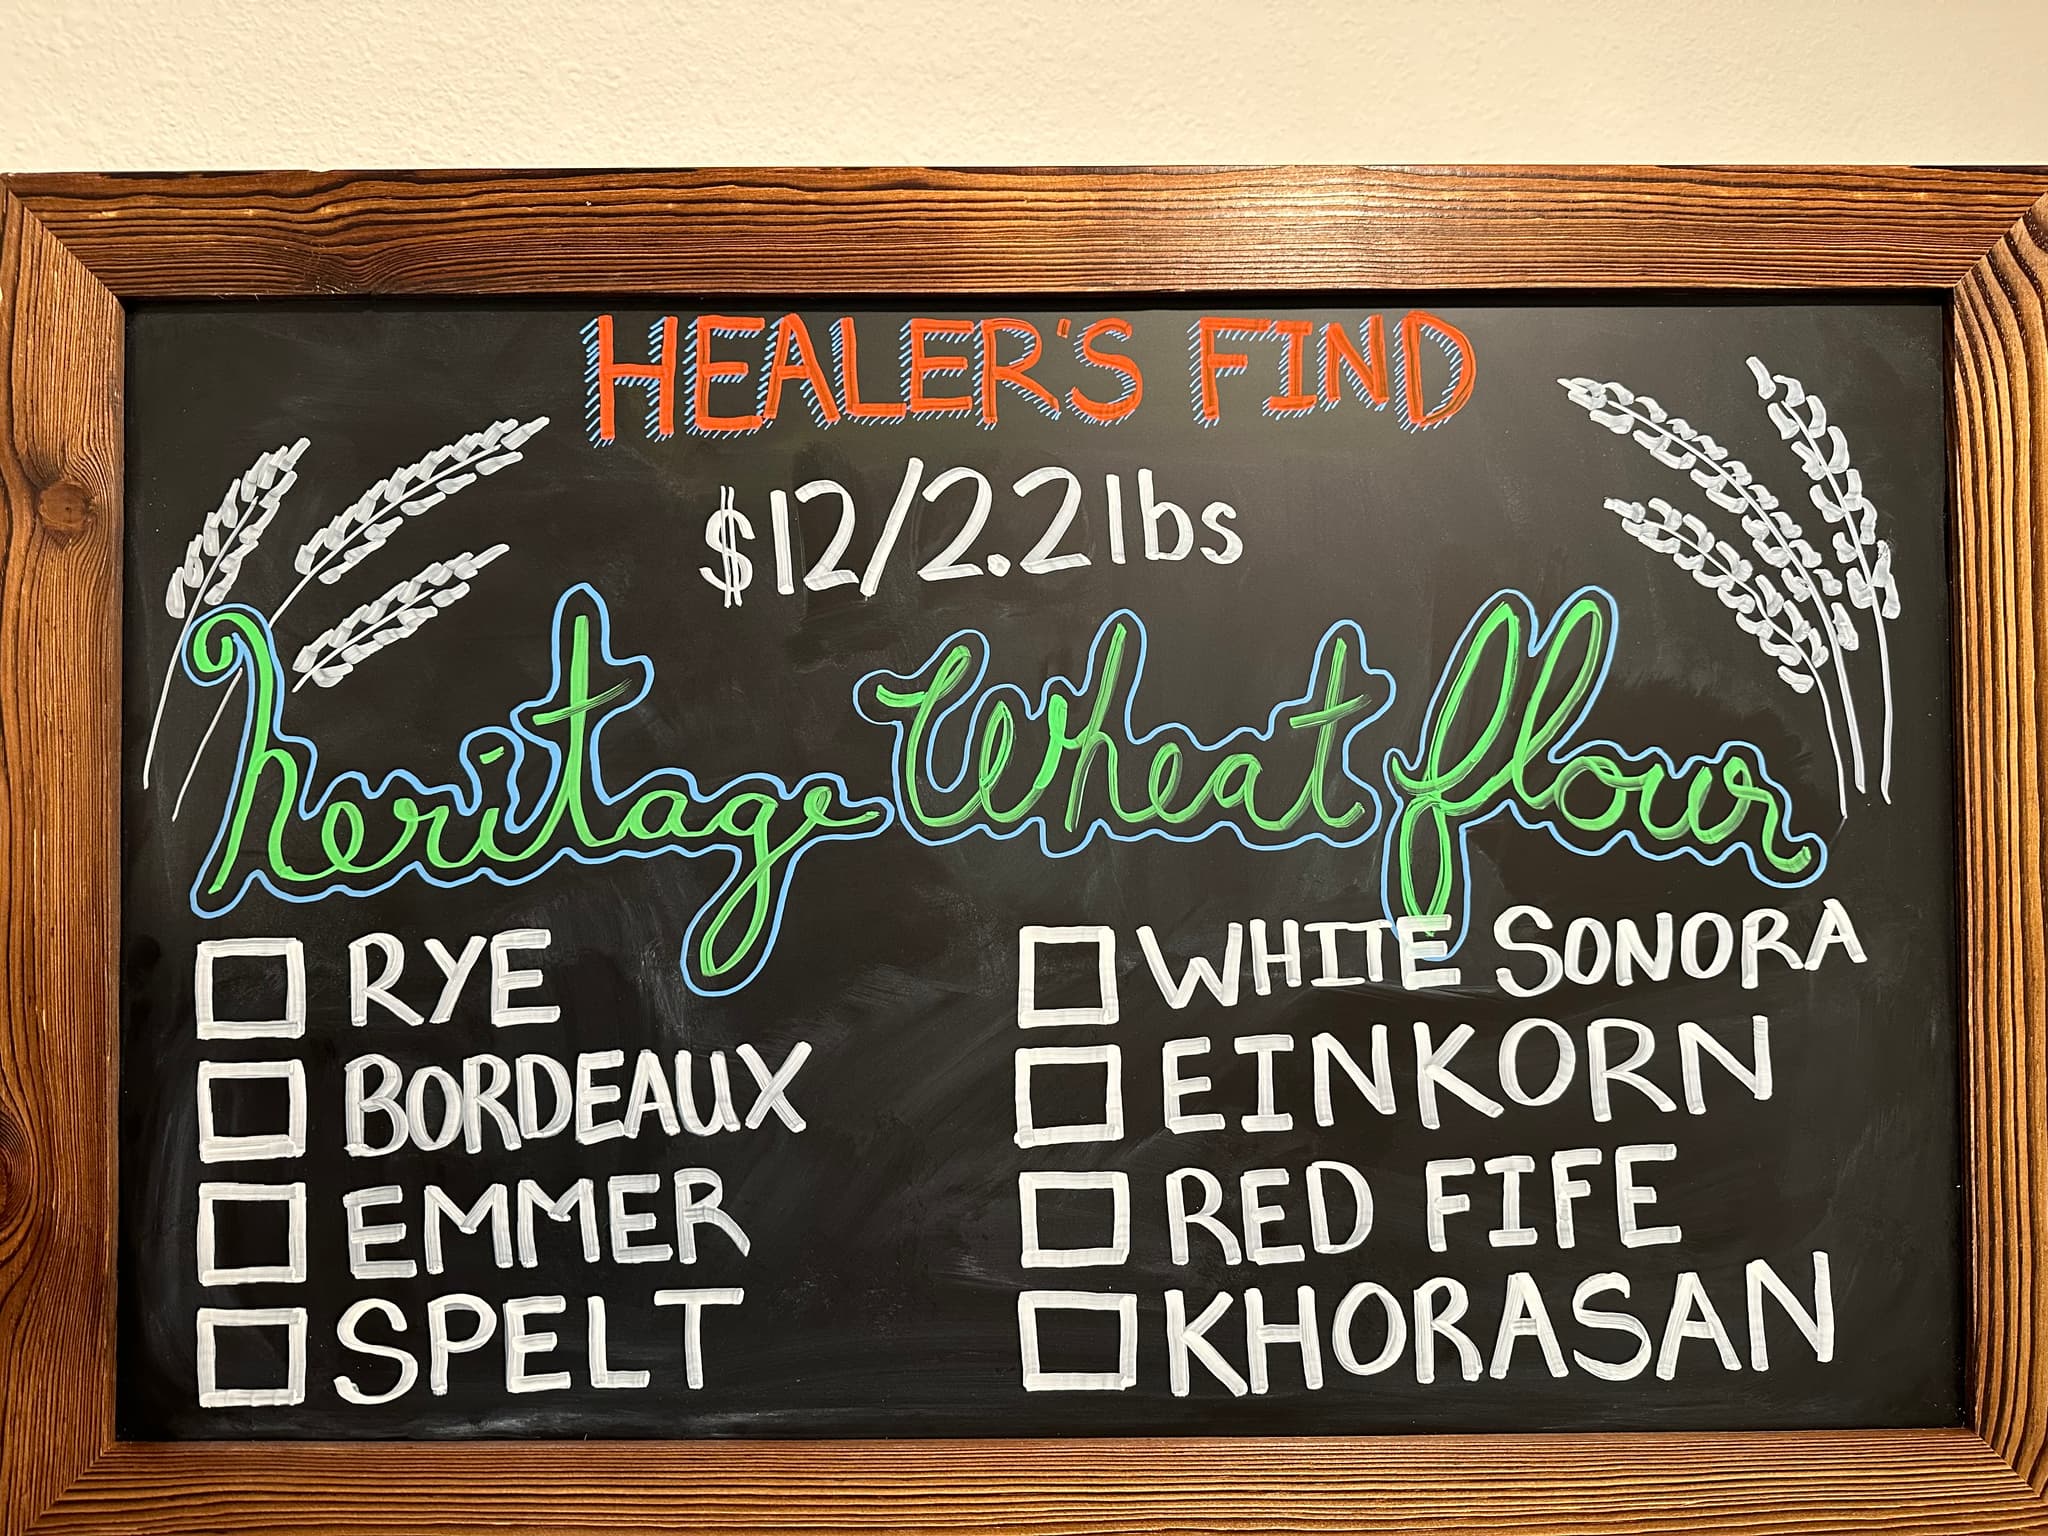 HEALER'S FIND
$12/2.2lbs
heritage Wheat flour
RYE
BORDEAUX
EMMER
SPELT
WHITE SONORA
EINKORN
RED FIFE
KHORASAN